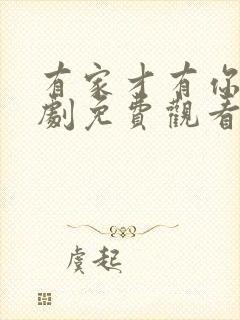 有家才有你
劇免費觀看
虞起